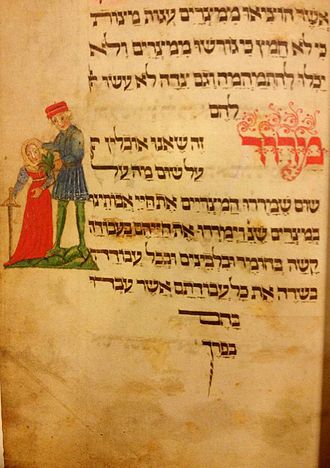 אשר הוציאו ממצרים עגות מצות
כי לא חמץ כי גורשו ממצרים ולא
יכלו להתמהמה וגם צדה לא עשו
להם
מרור זה שאנו אוכלין
על שום מה על
שום שמררו המצרים את חיי אבותינו
במצרים שנ וימררו את חייהם בעבודה
קשה בחומר ובלבנים ובכל עבודה
בשדה את כל עבודתם אשר עבדו
בהם
בפרך